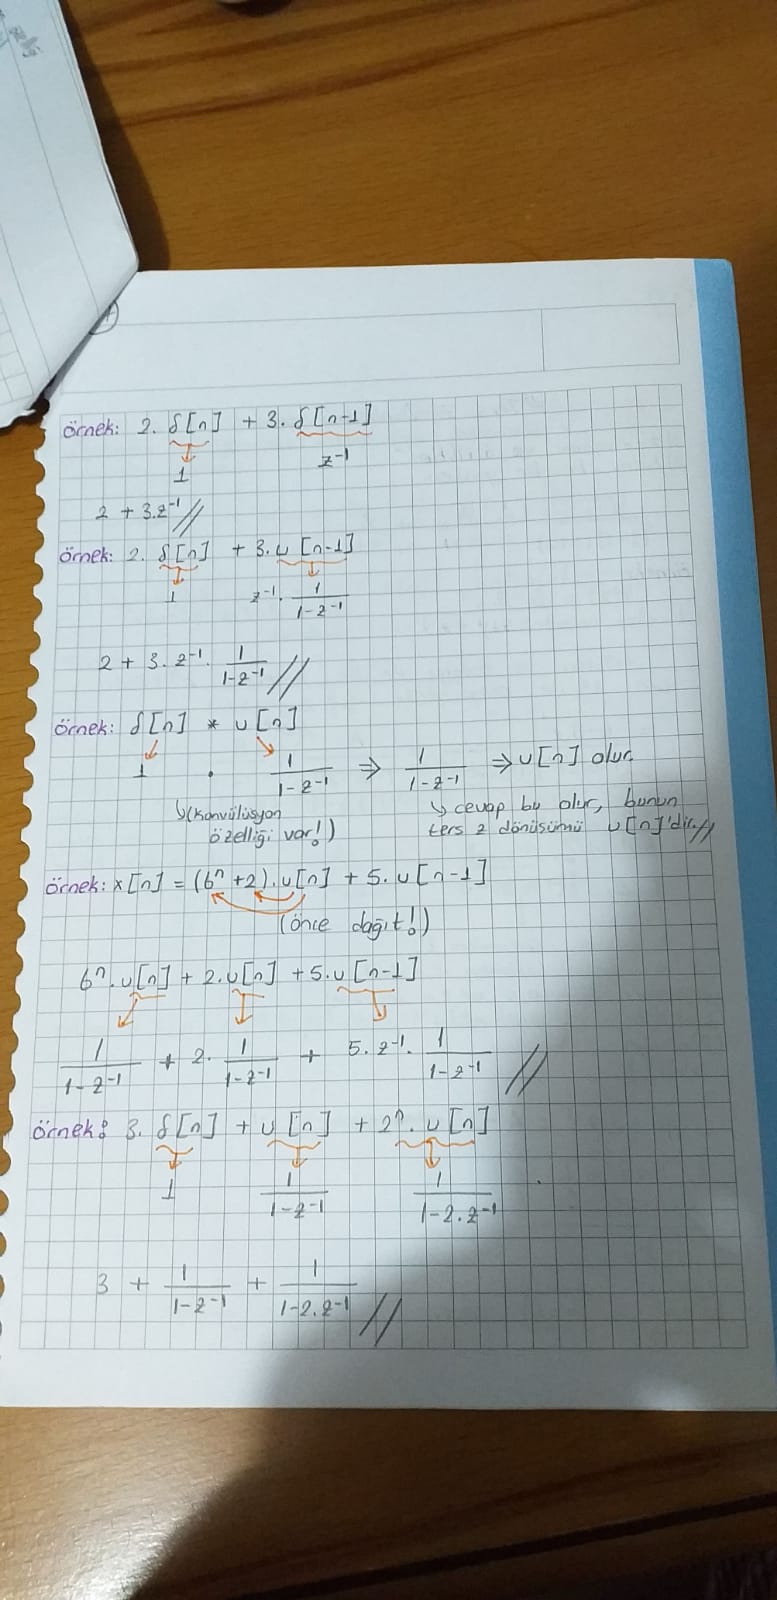 örnek: 2. δ[n] + 3. δ[n-1]
1 z⁻¹
2 + 3.z⁻¹//
örnek: 2. δ[n] + 3. u[n-1]
1 z⁻¹. 1/(1-z⁻¹)
2 + 3. z⁻¹. 1/(1-z⁻¹) //
örnek: δ[n] * u[n]
1 . 1/(1-z⁻¹) ⇒ 1/(1-z⁻¹) ⇒ u[n] olur.
↳(Konvülüsyon özelliği var!)
↳ cevap bu olur, bunun
ters z dönüsümü u[n]'dir.//
örnek: x[n] = (6ⁿ+2).u[n] + 5. u[n-1]
(önce dağıt!)
6ⁿ.u[n] + 2.u[n] + 5.u[n-1]
1/(1-z⁻¹) + 2. 1/(1-z⁻¹) + 5. z⁻¹. 1/(1-z⁻¹) //
örnek: 3. δ[n] + u[n] + 2ⁿ. u[n]
1 1/(1-z⁻¹) 1/(1-2.z⁻¹)
3 + 1/(1-z⁻¹) + 1/(1-2.z⁻¹) //